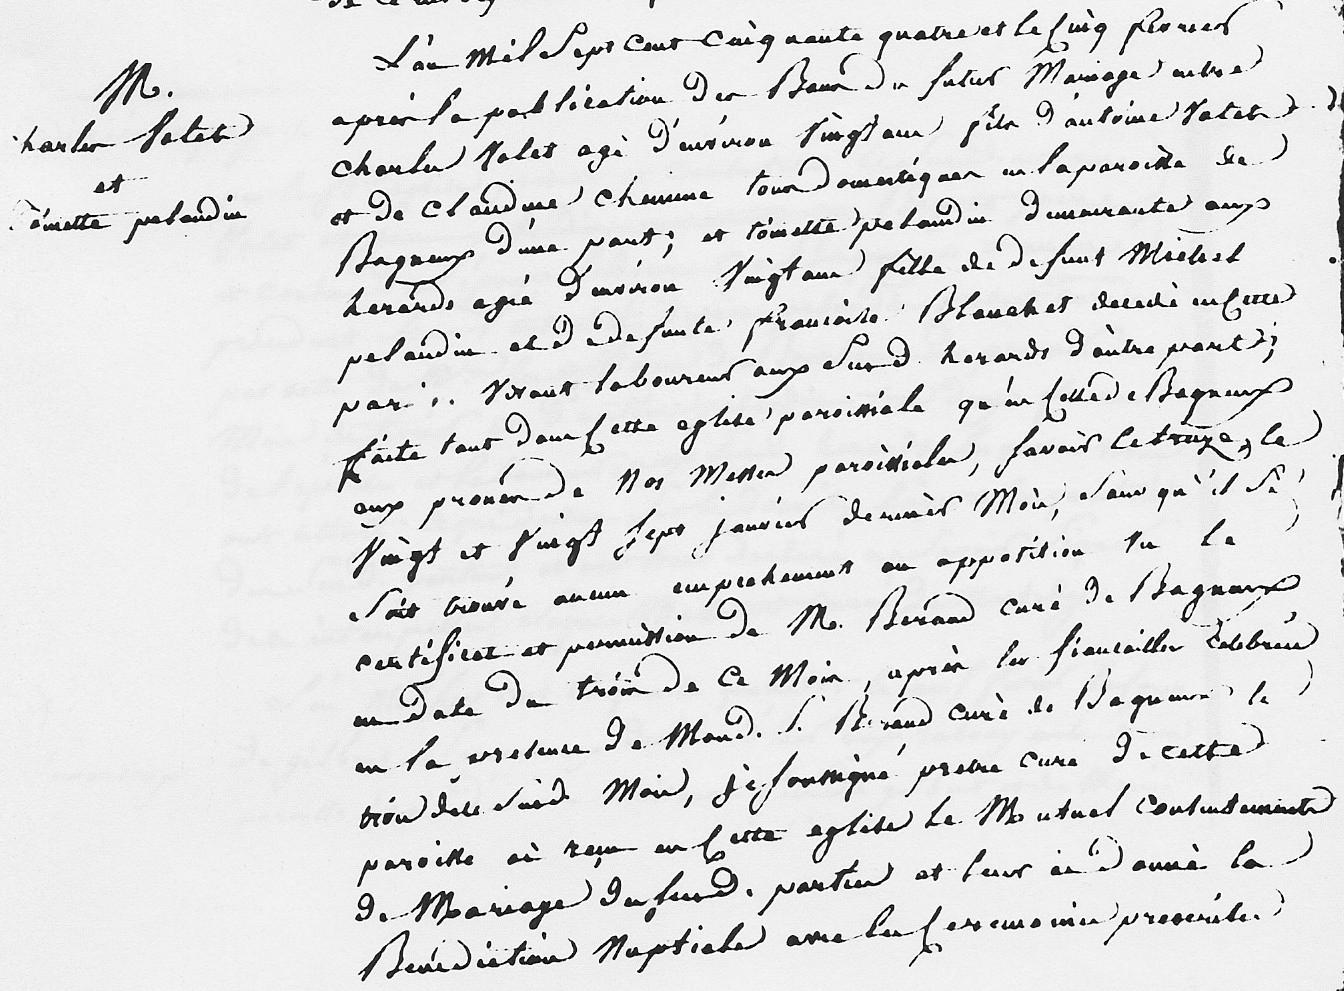 L'an Mil Sept Cent Cinquante quatre et le Cinq fevrier
M.
après la publication des Bans du futur Mariage entre
charles Valet
charles Valet agé d'environ Vingt ans fils d'antoine Valet
et
et de claudine chemine tous domestiques en la paroisse de
toinette pelaudin
Bagneux d'une part; et toinette pelaudin demeurante aux
herards agée d'environ Vingt ans fille de defunt Michel
pelaudin et de defunte francoise Blanchet decedé en Cette
par: Vivant laboureur aux Susd. herards d'autre part;
faite tant dans Cette eglise paroissiale qu'en Celle de Bagneux
aux prones de Nos Messes paroissiales, savoir le treize, le
Vingt et Vingt Sept janvier dernier Mois, Sans qu'il Se
Soit trouvé aucun empechement ou opposition Vu le
certificat et permission de M. Beraud curé de Bagneux
en date du trois de Ce Mois, après les fiancailles celebrées
en la presence de Mond. S. Beraud curé de Bagneux le
trois de Susd. Mois, je soussigné pretre curé de cette
paroisse ai reçu en Cette eglise le Mutuel Consentement
de Mariage des susd. parties et leur ai donné la
Bénédiction Nuptiale avec les Ceremonies prescrites